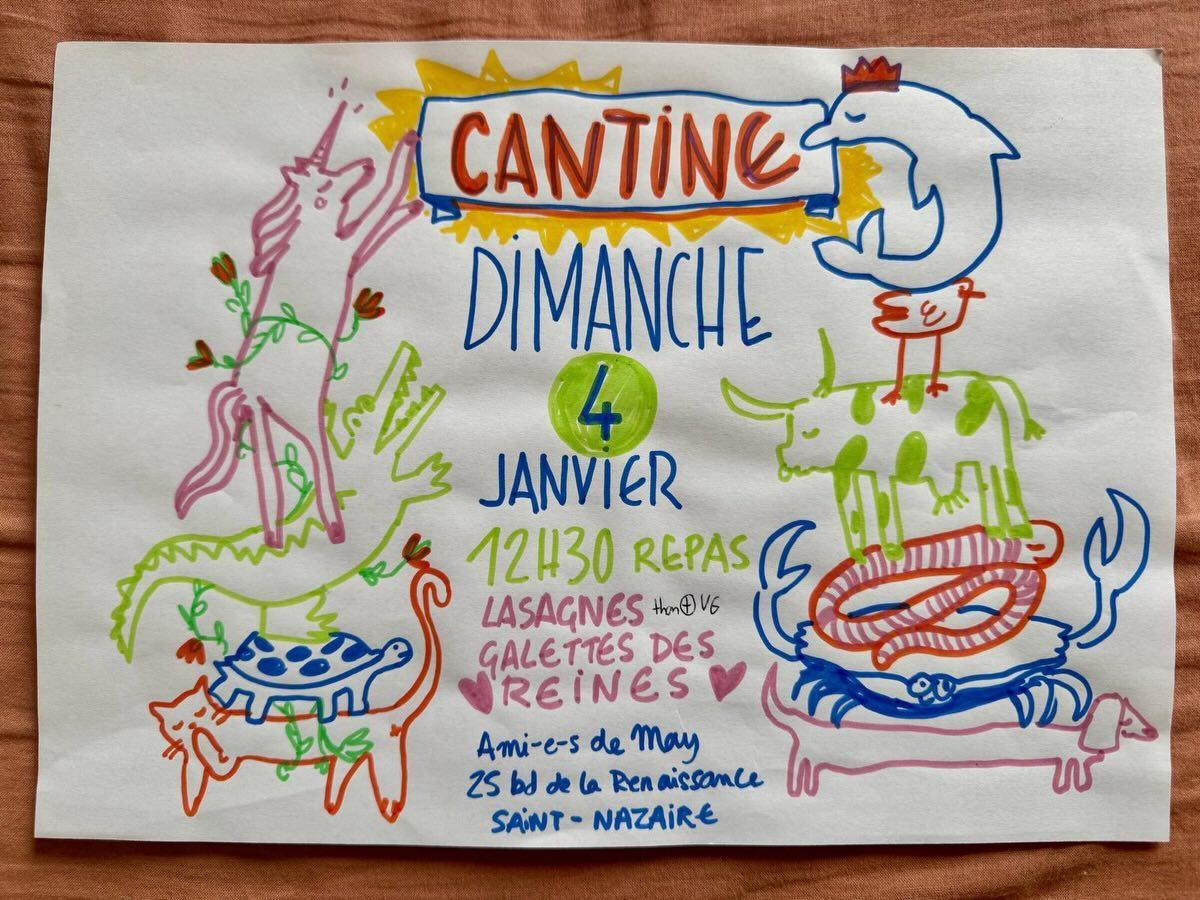 CANTINE
DIMANCHE
4
JANVIER
12H30 REPAS
LASAGNES thon ⊕ VG
GALETTES DES
REINES
Ami-e-s de May
25 bd de la Renaissance
SAINT-NAZAIRE